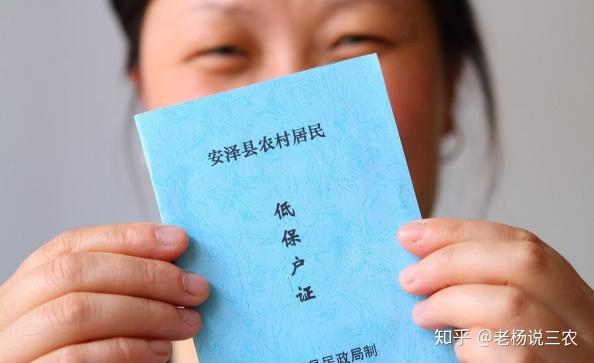 安泽县农村居民
低保户证
县民政局制
知乎 @老杨说三农